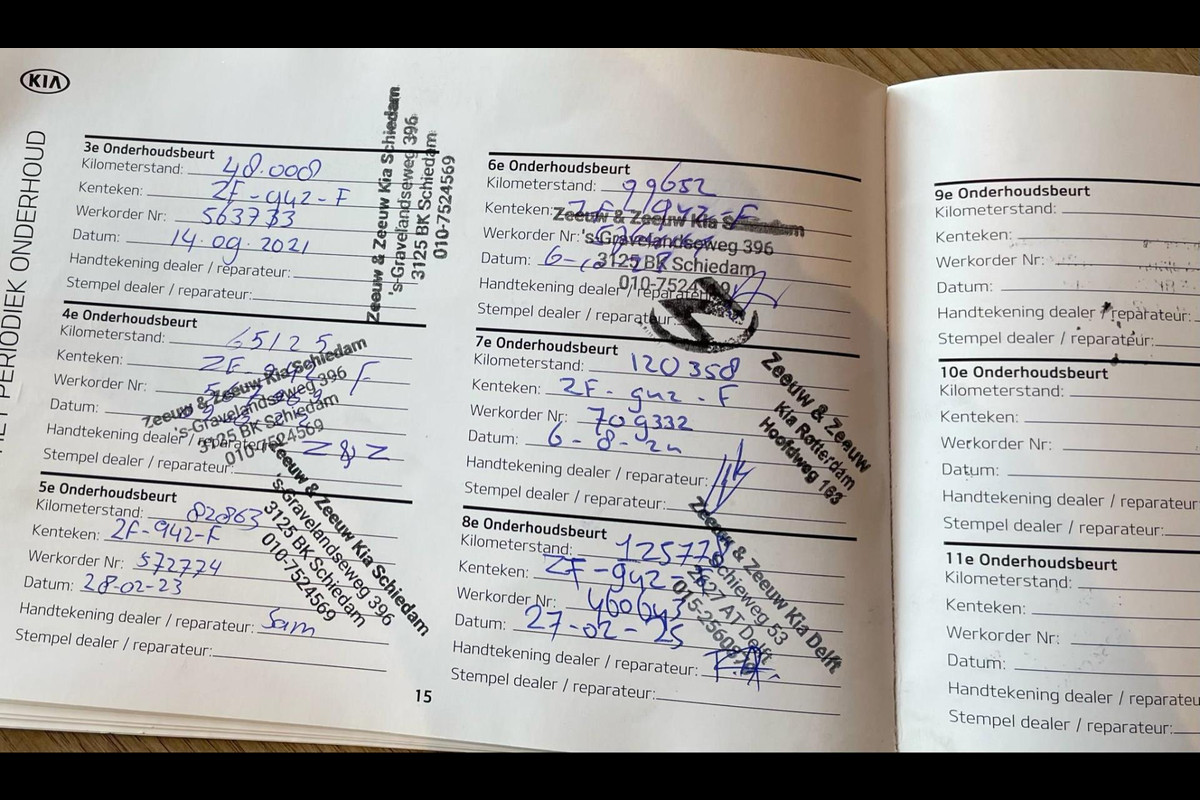 KIA
PERIODIEK ONDERHOUD
3e Onderhoudsbeurt
Kilometerstand: 48.000
Kenteken: ZF-942-F
Werkorder Nr: 563733
Datum: 14.09.2021
Handtekening dealer / reparateur:
Stempel dealer / reparateur:
Zeeuw & Zeeuw Kia Schiedam
's-Gravelandseweg 396
3125 BK Schiedam
010-7524569
4e Onderhoudsbeurt
Kilometerstand: 65125
Kenteken: ZF-942-F
Werkorder Nr:
Datum:
Handtekening dealer / reparateur: Z&Z
Stempel dealer / reparateur:
Zeeuw & Zeeuw Kia Schiedam
's-Gravelandseweg 396
3125 BK Schiedam
010-7524569
5e Onderhoudsbeurt
Kilometerstand: 82863
Kenteken: ZF-942-F
Werkorder Nr: 572774
Datum: 28-02-23
Handtekening dealer / reparateur: Sam
Stempel dealer / reparateur:
Zeeuw & Zeeuw Kia Schiedam
's-Gravelandseweg 396
3125 BK Schiedam
010-7524569
15
6e Onderhoudsbeurt
Kilometerstand: 99652
Kenteken: ZF-942-F
Werkorder Nr:
Datum:
Handtekening dealer / reparateur:
Stempel dealer / reparateur:
Zeeuw & Zeeuw Kia Schiedam
's-Gravelandseweg 396
3125 BK Schiedam
010-7524569
7e Onderhoudsbeurt
Kilometerstand: 120358
Kenteken: ZF-942-F
Werkorder Nr: 709332
Datum: 6-8-24
Handtekening dealer / reparateur:
Stempel dealer / reparateur:
Zeeuw & Zeeuw
Kia Rotterdam
Hoofdweg 163
8e Onderhoudsbeurt
Kilometerstand: 125778
Kenteken: ZF-942-F
Werkorder Nr: 460643
Datum: 27-02-25
Handtekening dealer / reparateur:
Stempel dealer / reparateur:
Zeeuw & Zeeuw Kia Delft
Schieweg 53
2627 AT Delft
9e Onderhoudsbeurt
Kilometerstand:
Kenteken:
Werkorder Nr:
Datum:
Handtekening dealer / reparateur:
Stempel dealer / reparateur:
10e Onderhoudsbeurt
Kilometerstand:
Kenteken:
Werkorder Nr:
Datum:
Handtekening dealer / reparateur
Stempel dealer / reparateur:
11e Onderhoudsbeurt
Kilometerstand:
Kenteken:
Werkorder Nr:
Datum:
Handtekening dealer / reparateu
Stempel dealer / reparateur: